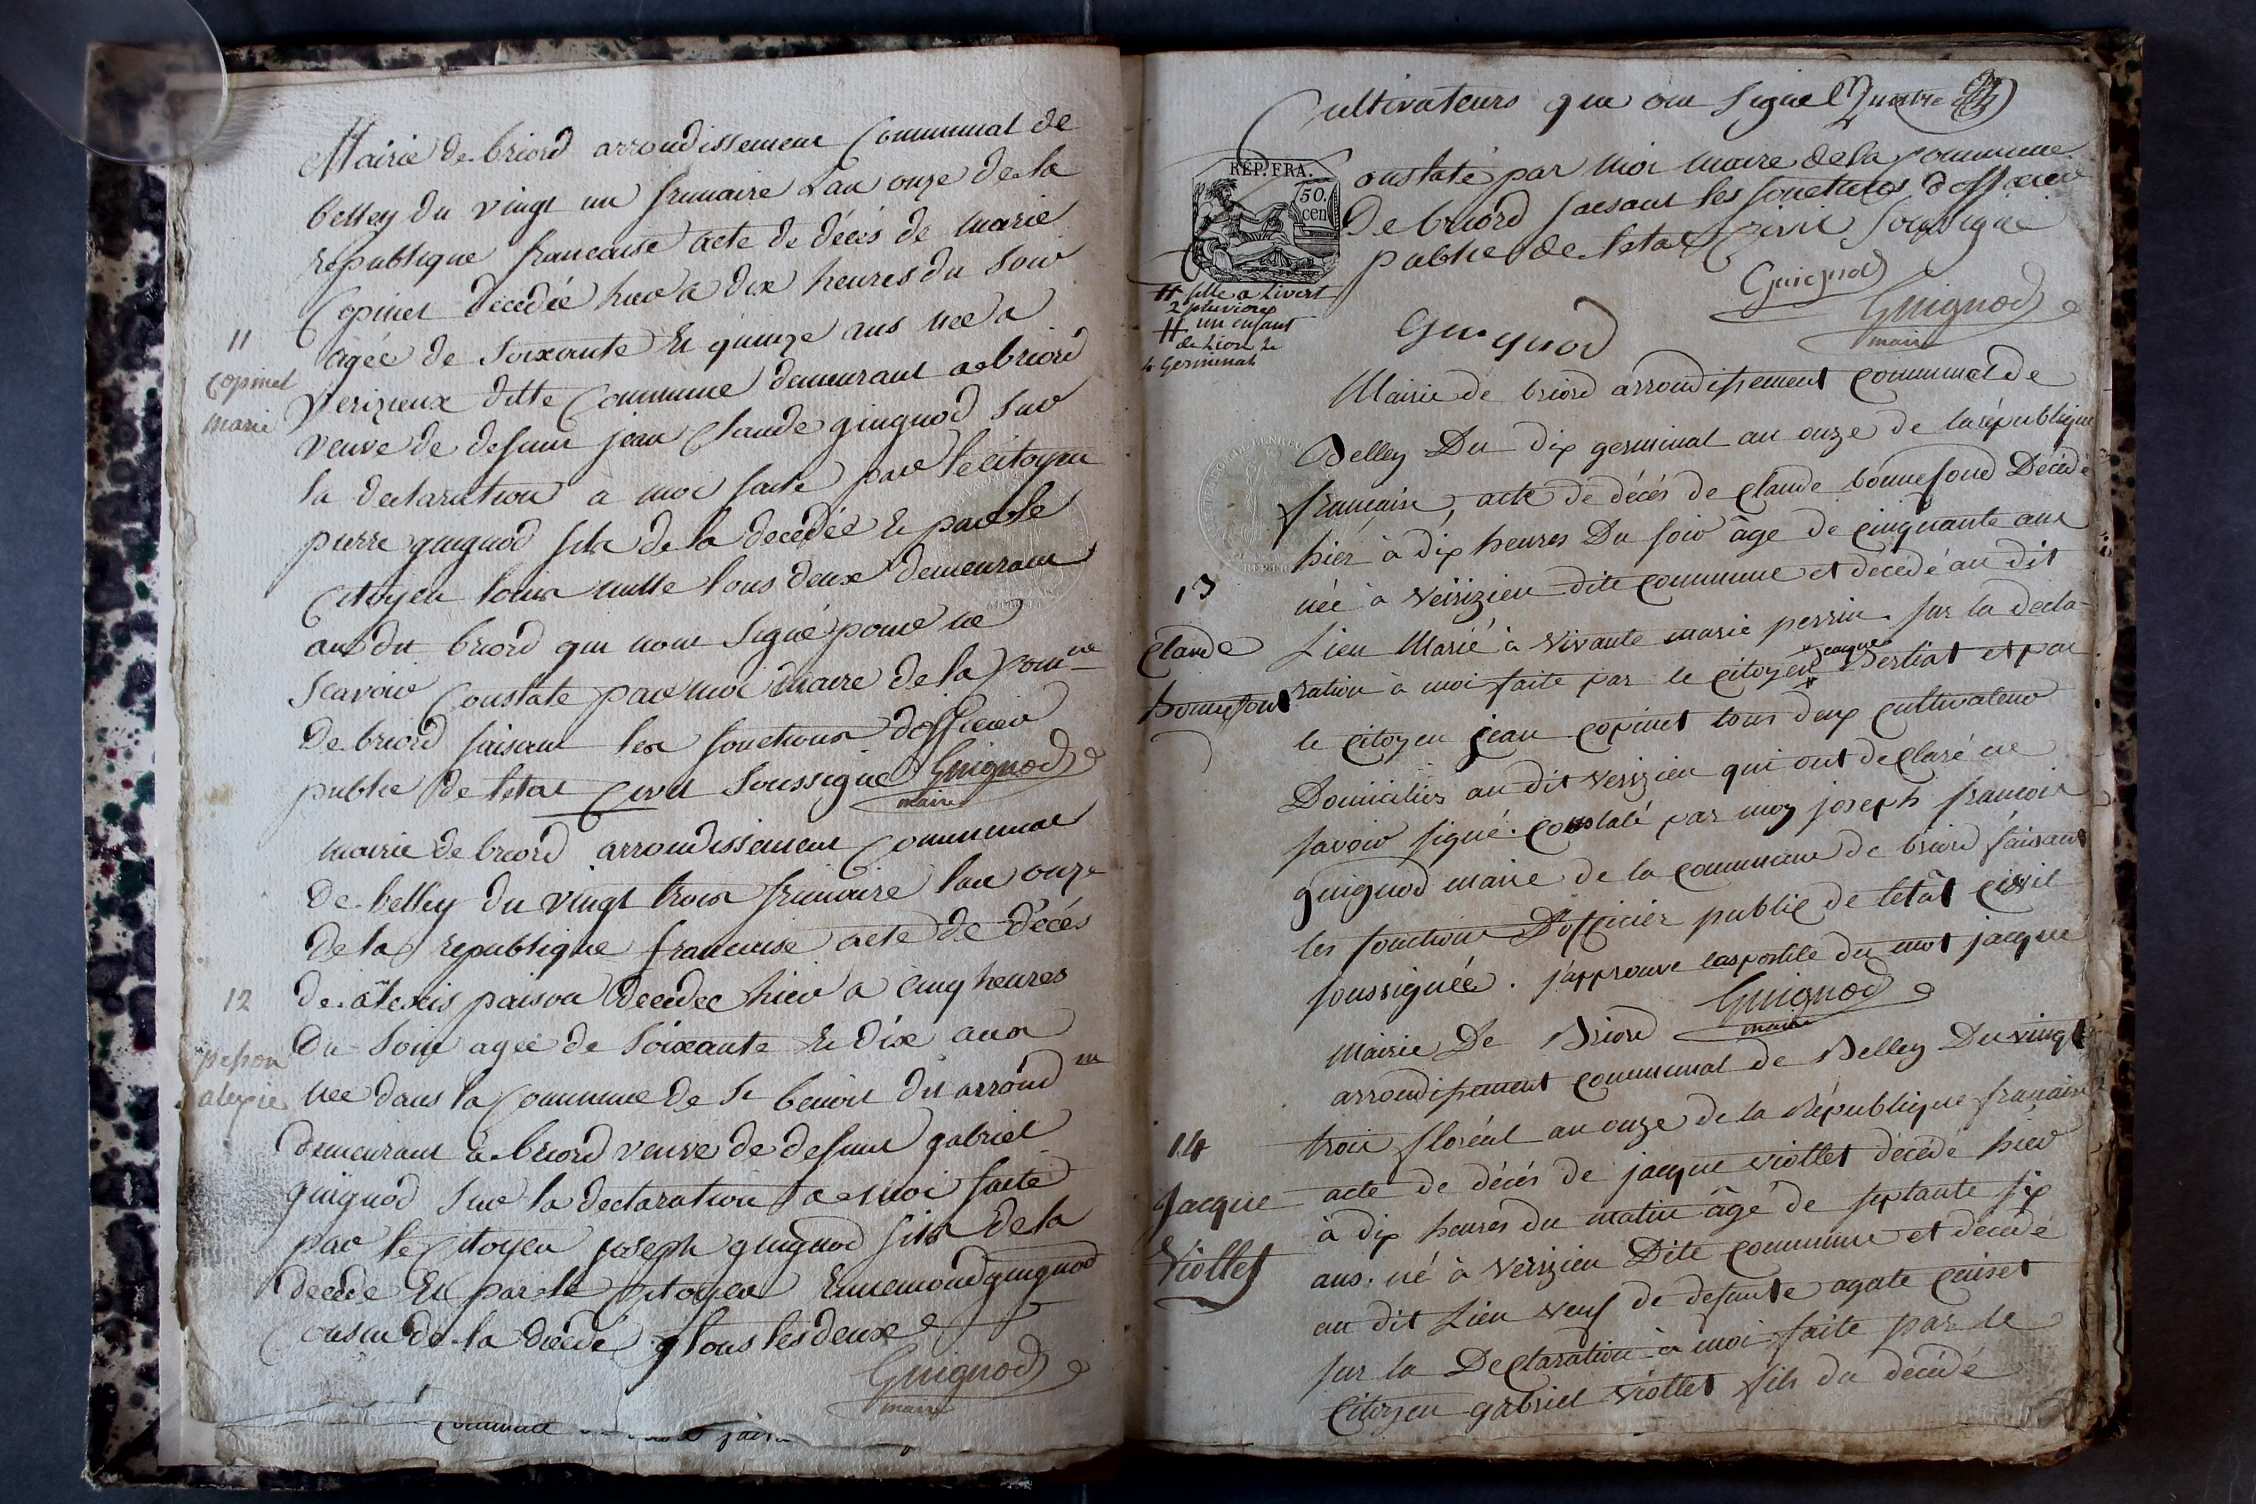 Mairie de briord arrondissement Communal de
belley du vingt un frimaire lan onze de la
republique francaise acte de décés de marie
Copinet decedée hier a dix heures du soir
11
agée de soixante et quinze ans nee a
Copinet
verizieux ditte Commune demeurant a briord
marie
veuve de defunt jean Claude guignod sur
la declaration a moi faite par le citoyen
pierre guignod fils de la decedée et par le
Citoyen tous deux demeurant
audit briord qui nont signé pour ne
scavoir Constate par moi maire de la Comne
de briord faisant les fonctions dofficier
public de letat Civil soussigné Guignod
maire
mairie de briord arrondissement Communal
de belley du vingt trois frimaire lan onze
de la republique francaise acte de décés
12
de alexis paison decedee hier a cinq heures
du soir agée de soixante et dix ans
pesson
alexie
nee dans la Commune de st benoit dit arrondm
demeurant a briord veuve de defunt gabriel
guignod sur la declaration a moi faite
par le Citoyen joseph guignod fils de la
decede et par le Citoyen Ennemond guignod
Cousin de la decedé tous les deux
Guignod
maire
Cultivateurs que ont signé
Constaté par moi maire de la Commune
REP. FRA.
50.
cen
de briord faisant les fonctions dofficier
public de letat Civil soussigné
Guignod
Guignod
maire
# fille a livert
2 pluviore
# un enfant
de Léon le
4 Germinal
Guignod
Mairie de briord arrondissement communal de
Belley Du dix germinal an onze de la république
française, acte de décés de claude bonnefond Décédé
hier à dix heures Du soir âgé de cinquante ans
13
née à Veirizieu dite commune et décédé au dit
Claude
Lieu Marié à vivante marie perrin. sur la decla-
bonnefont
jacque
ration à moi faite par le citoyen Bertiat et par
le citoyen jean copinet tous deux cultivateur
Domiciliés au dit verizieu qui ont declaré ne
savoir signé. constaté par moy joseph francois
guignod maire de la commune de briord faisant
les fonctions D'officier public de letât civil
soussignée. japprouve lapostile du mot jacque
Guignod
maire
Mairie De Briord
arrondissement communal de Belley Du vingt
14
trois floréal an onze de la République française
Jacque
acte de décés de jacque viollet décédé hier
à dix heures du matin âgé de septante six
Viollet
ans. né à Verizieu Dite commune et décédé
au dit Lieu veuf de defunte agate
sur la Declaration à moi faite par le
Citoyen gabriel viollet fils du decédé